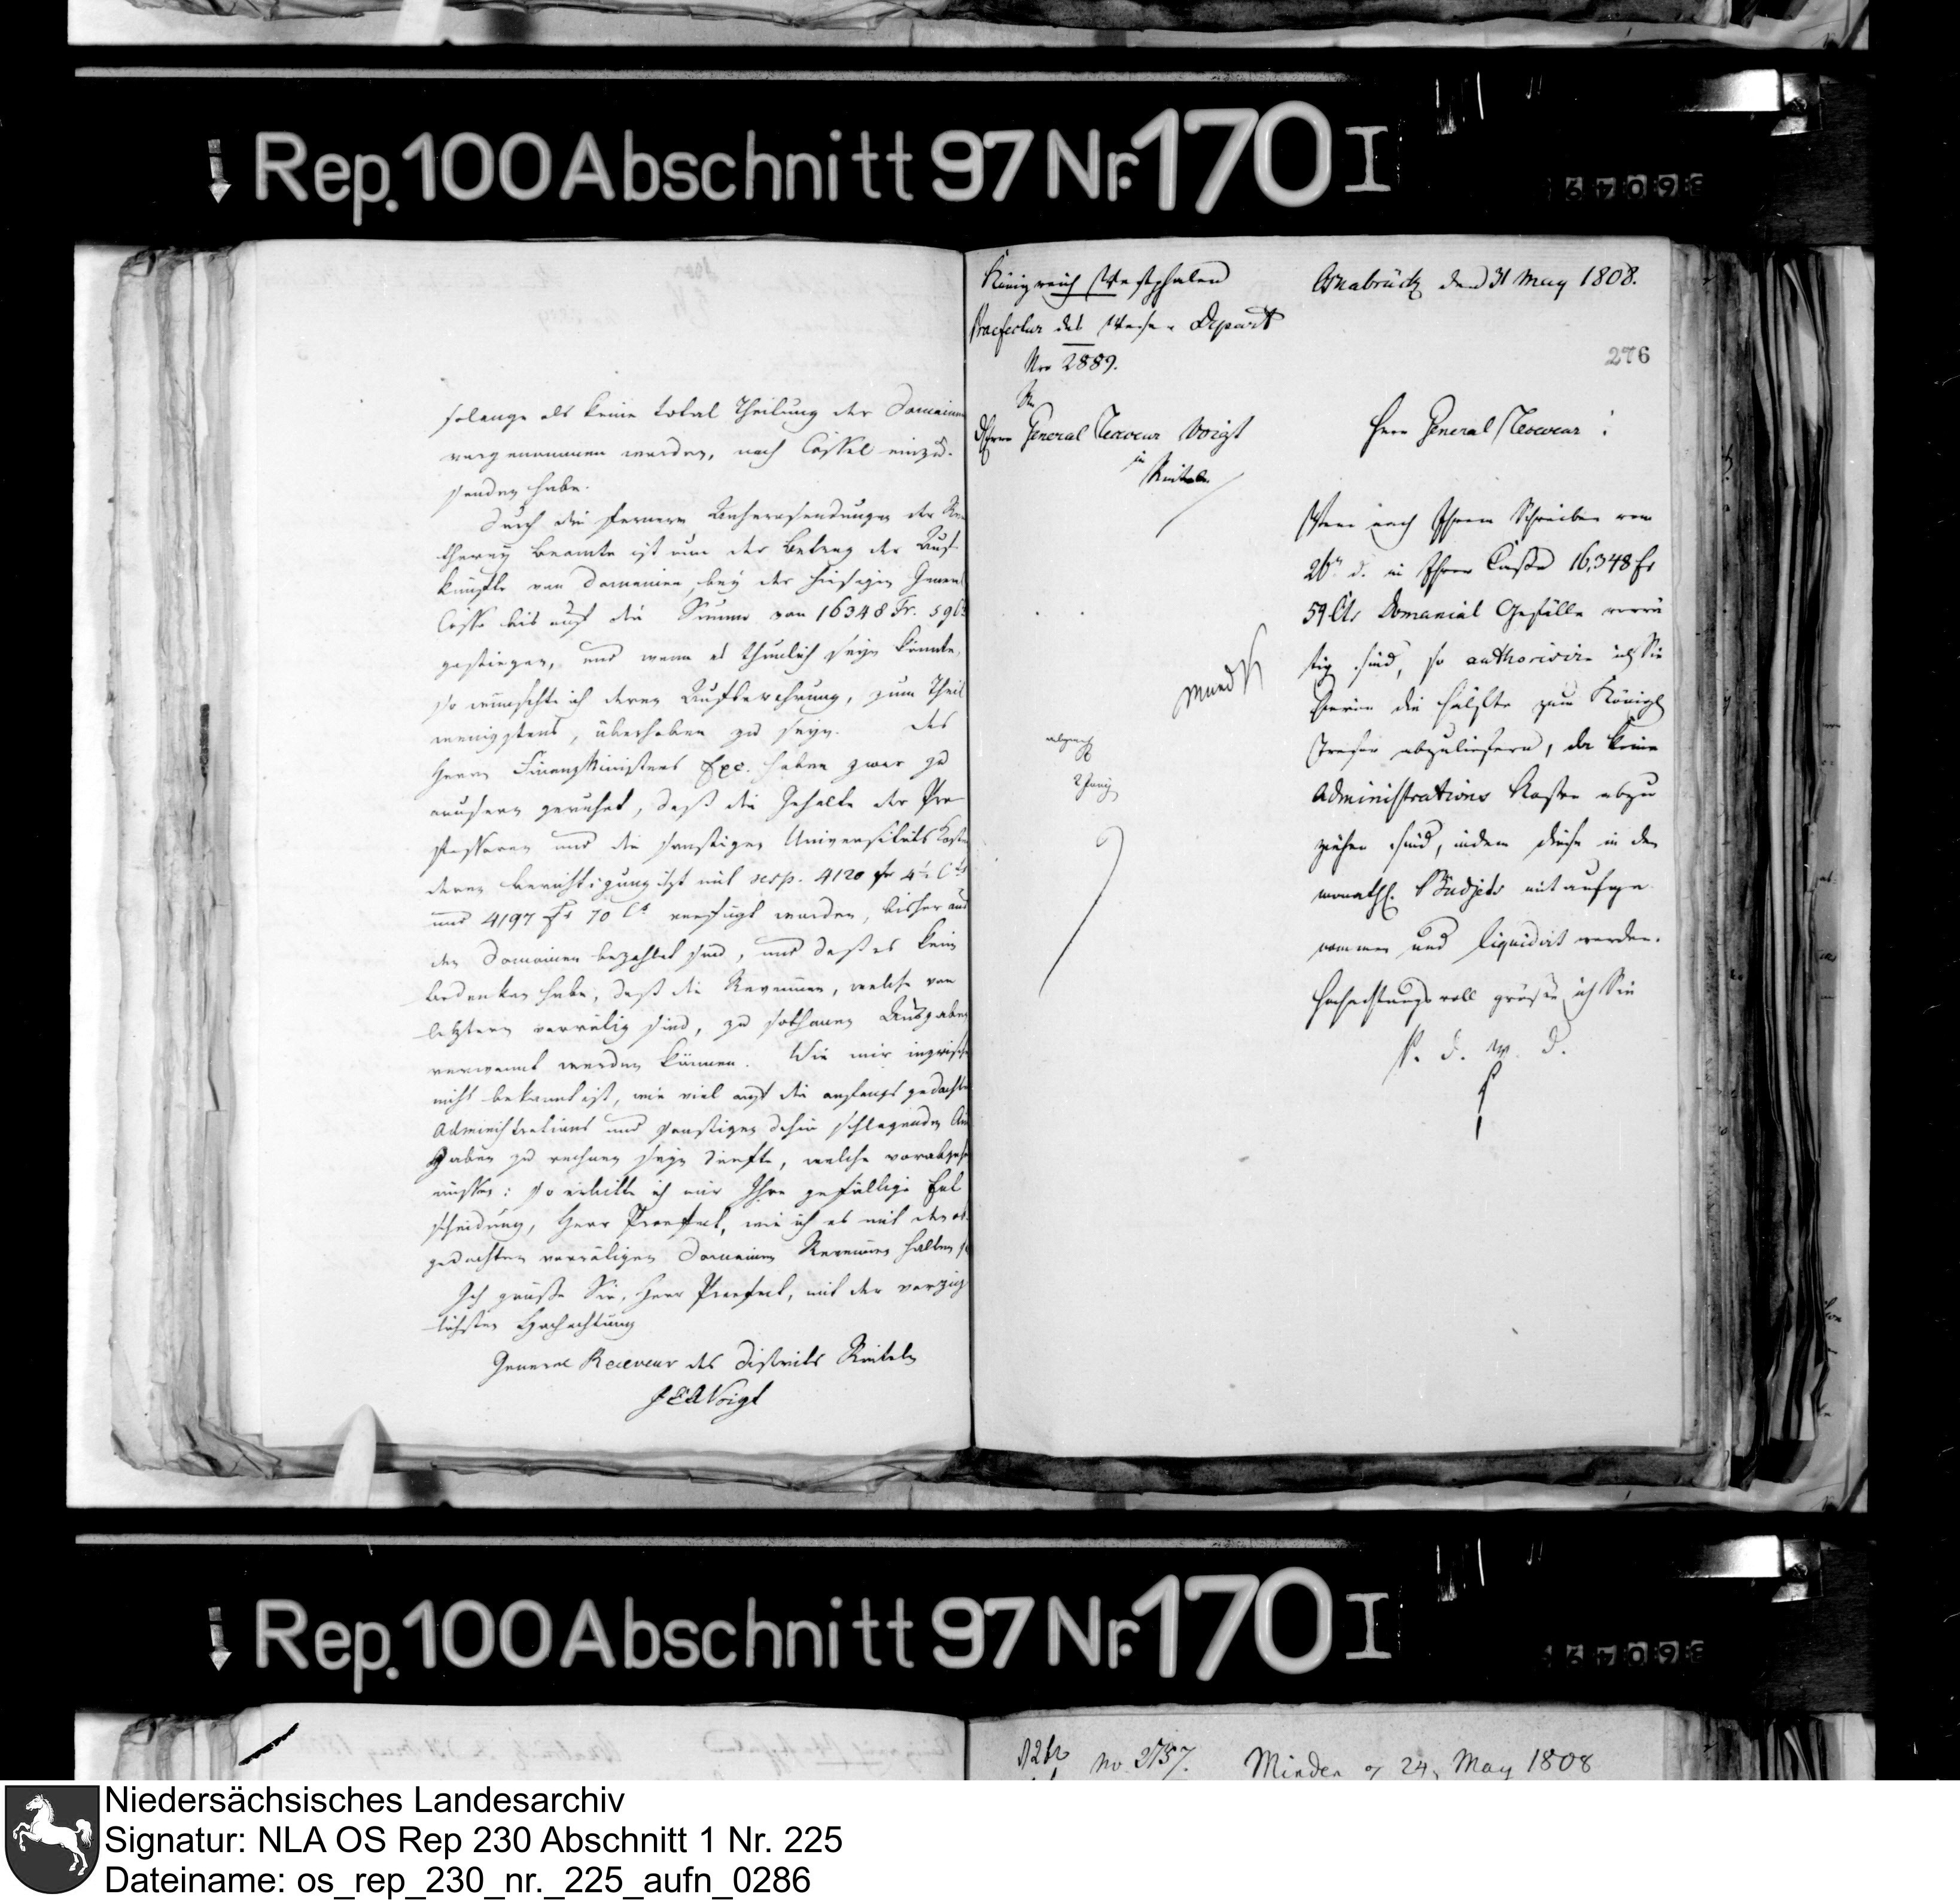 Rep. 100 Abschnitt 97 Nr. 170 I
solange als keine total Theilung der Domainen
vorgenommen worden, nach Cassel einzu-
senden habe.
Durch die fernern Anherosendungen der
Beamte ist nun der Betrag der Auf
künfte von Domainen bey der hiesigen General
Casse bis auf die Summe von 16348 Fr. 59 Cts
gestiegen, und wenn es thunlich seyn könnte,
so wünschte ich deren Aufbewahrung, zum Theil
wenigstens, überhoben zu seyn. Des
Herrn FinanzMinisters Exc. haben zwar zu
aeusern geruhet, daß die Gehalte der Pro
fessoren und die sonstigen Universitäts Kosten
deren Berichtigung itzt mit resp. 4120 fr 4½ Cts
und 4197 Fr 70 Cs verfügt worden, bisher aus
den Domainen bezahlt sind, und daß es kein
Bedenken habe, daß die Revenuen, welche von
letztern vorrätig sind, zu sothanen Ausgaben
verwannt werden können. Wie mir inzwischen
nicht bekannt ist, wie viel auf die anfangs gedachte
Administrations und sonstigen dahin schlagenden Aus
gaben zu rechnen seyn dürfte, welche vorabgehen
müssen: so erbitte ich mir Ihre gefällige Ent
scheidung, Herr Praefect, wie ich es mit den ob
gedachten vorrätigen Domainen Revenuen halten soll
Ich grüße Sie, Herr Praefect, mit der vorzüg
lichsten Hochachtung
General Receveur des Districts Rinteln
Voigt
Königreich Westphalen
Praefectur des Weser Depart
Nro 2889.
An
Herrn General Receveur Voigt
in
Rinteln
Osnabrück den 31 May 1808.
276
Herr General Receveur!
Wenn nach Ihrem Schreiben vom
26n d. in Ihrer Casse 16,348 fr
59 Cts Domanial Gefälle vorrä
tig sind, so authorisire ich Sie
hievon die Hälfte zum Königl
Tresor abzuliefern, da keine
Administrations Kosten abzu
ziehen sind, indem diese in den
monathl. Büdjets mit aufge
nommen und liquidirt werden.
Hochachtungsvoll grüße ich Sie
P. d. W. D.
mund
abgesch
2 Juny
Rep. 100 Abschnitt 97 Nr. 170 I
No 2757. Minden d 24 May 1808
Niedersächsisches Landesarchiv
Signatur: NLA OS Rep 230 Abschnitt 1 Nr. 225
Dateiname: os_rep_230_nr._225_aufn_0286